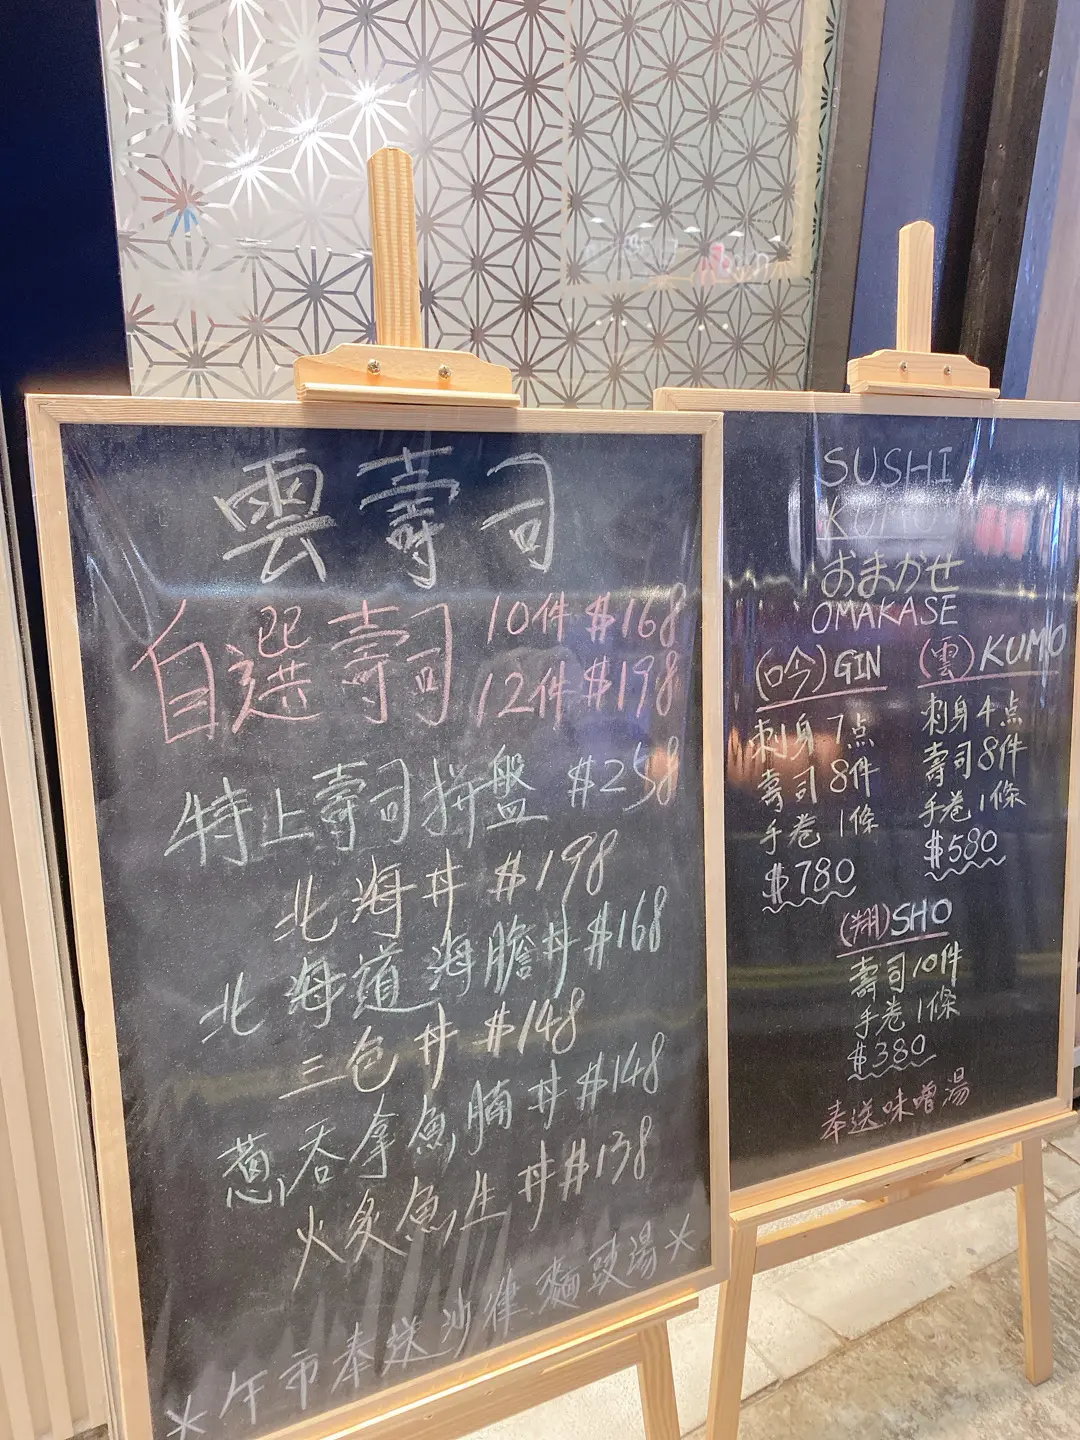 雲壽司
自選壽司 10件 $168
12件 $198
特上壽司拼盤 $258
北海丼 $198
北海道海膽丼 $168
三色丼 $148
蔥吞拿魚腩丼 $148
火炙魚生丼 $138
*午市奉送沙律麵豉湯*
SUSHI
KUMO
おまかせ
OMAKASE
(吟) GIN
刺身 7点
壽司 8件
手巻 1條
$780
(雲) KUMO
刺身 4点
壽司 8件
手巻 1條
$580
(翔) SHO
壽司 10件
手巻 1條
$380
奉送味噌湯